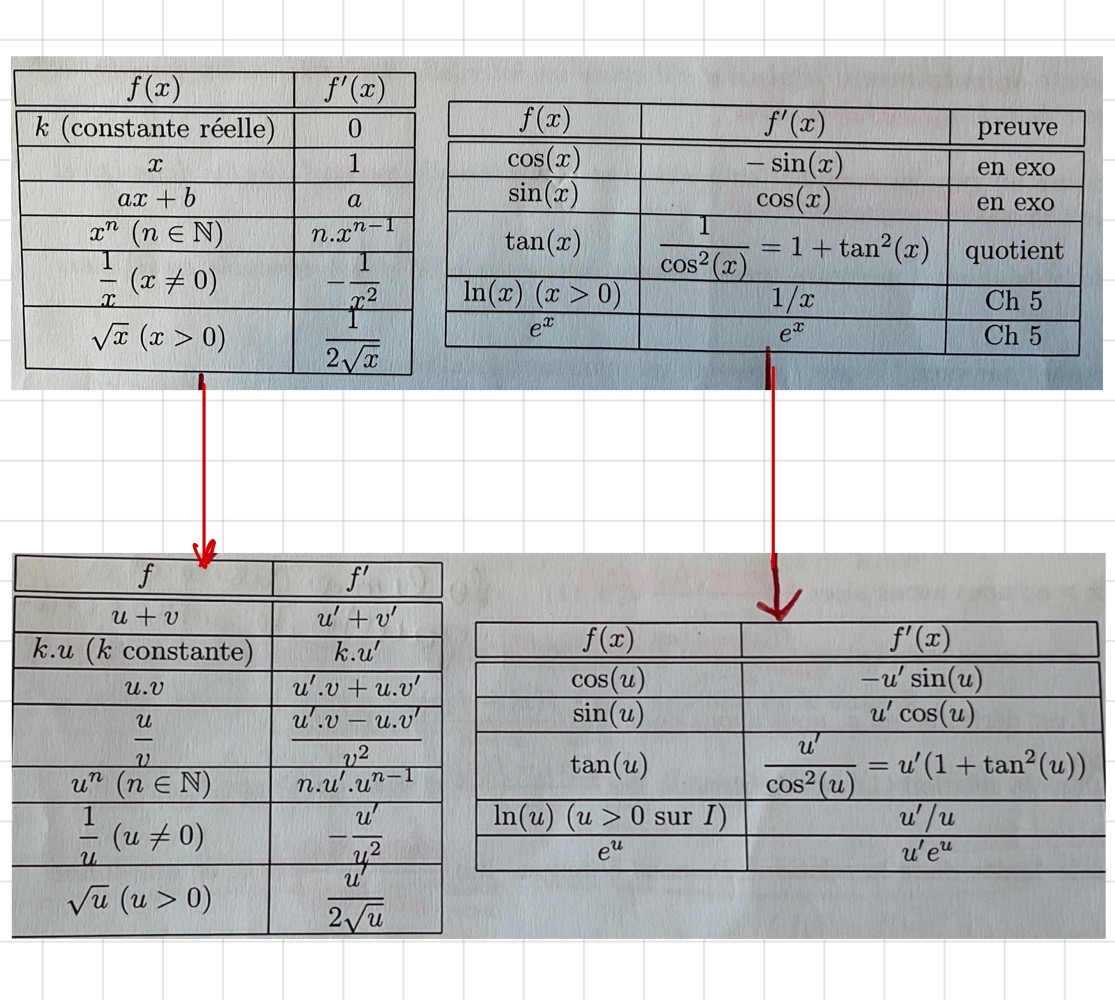 f(x) f′(x)
k (constante réelle) 0
x 1
ax + b a
xⁿ (n ∈ ℕ) n.xⁿ⁻¹
1/x (x ≠ 0) −1/x²
√x (x > 0) 1/(2√x)
f(x) f′(x) preuve
cos(x) − sin(x) en exo
sin(x) cos(x) en exo
tan(x) 1/cos²(x) = 1 + tan²(x) quotient
ln(x) (x > 0) 1/x Ch 5
eˣ eˣ Ch 5
f f′
u + v u′ + v′
k.u (k constante) k.u′
u.v u′.v + u.v′
u/v (u′.v − u.v′)/v²
uⁿ (n ∈ ℕ) n.u′.uⁿ⁻¹
1/u (u ≠ 0) −u′/u²
√u (u > 0) u′/(2√u)
f(x) f′(x)
cos(u) −u′ sin(u)
sin(u) u′ cos(u)
tan(u) u′/cos²(u) = u′(1 + tan²(u))
ln(u) (u > 0 sur I) u′/u
eᵘ u′eᵘ